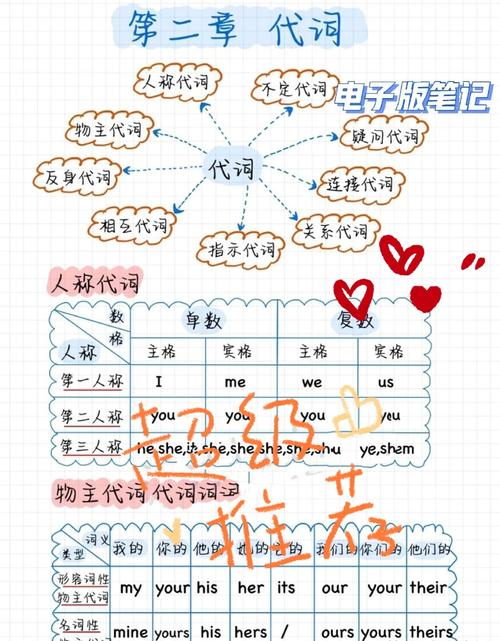 第二章 代词
电子版笔记
人称代词
不定代词
物主代词
疑问代词
代词
反身代词
连接代词
相互代词
关系代词
指示代词
人称代词
数 格 人称 单数 复数
主格 宾格 主格 宾格
第一人称 I me we us
第二人称 you you you yeu
第三人称 he,she,it she,she,she,she,shu ye,shem
超级
推荐
物主代词 代词词
词义 类型 我的 你的 他的 她的 它的 我们的 你们的 他们的
形容词性 物主代词 my your his her its our your their
名词性 物主代词 mine yours his hers / ours yours theirs